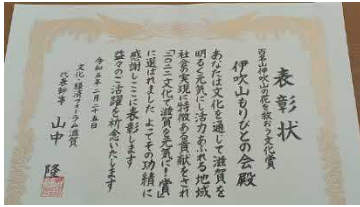 表彰状
百名山伊吹山の花を救おう文化賞
伊吹山もりびとの会殿
あなたは文化を通して滋賀を
明るく元気にし活力あふれる地域
社会の実現に特徴ある貢献をされ
「二〇二二文化で滋賀を元気に!賞」
に選ばれました よってその功績に
感謝しここに表彰します
益々のご活躍を祈念いたします
令和五年二月二十五日
文化・経済フォーラム滋賀
代表幹事 山中 隆